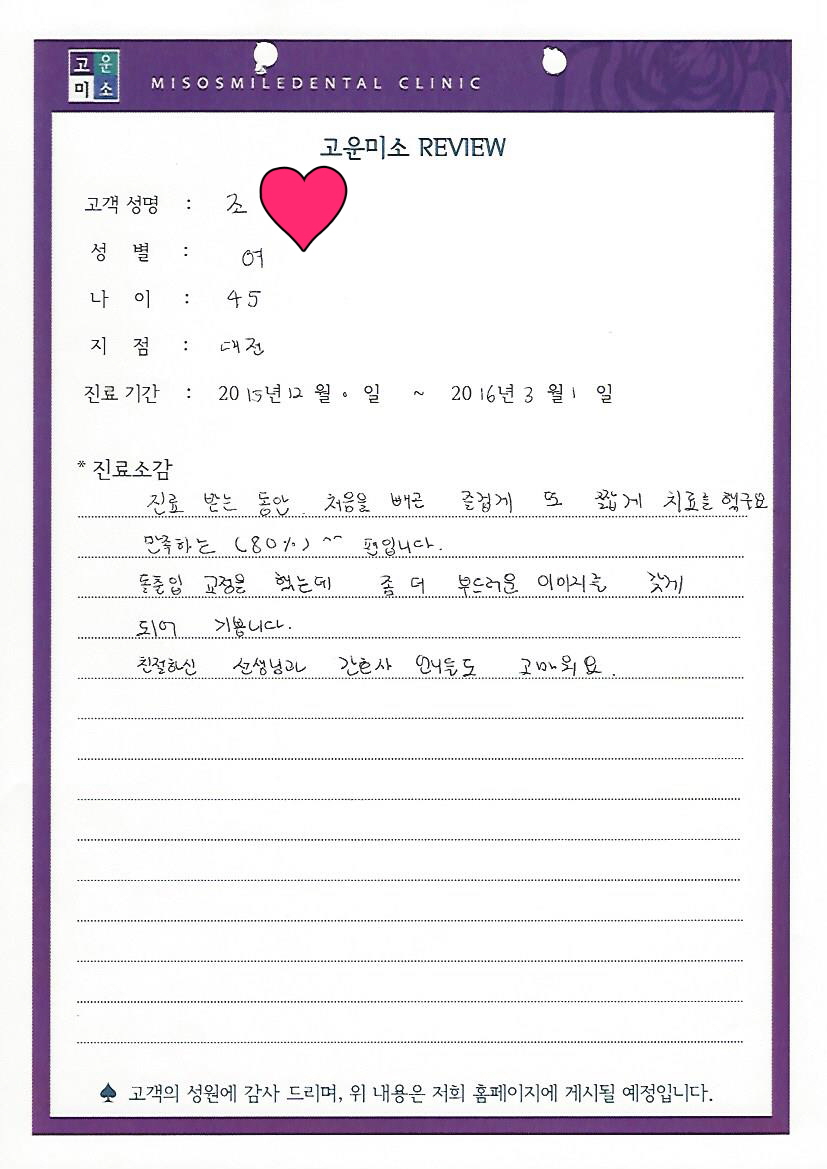 고운
미소
MISOSMILEDENTAL CLINIC
고운미소 REVIEW
고객 성명 : 조
성 별 : 여
나 이 : 45
지 점 : 대전
진료 기간 : 2015년 12 월 0 일 ~ 2016년 3 월 1 일
* 진료소감
진료 받는 동안 처음을 빼곤 즐겁게 또 짧게 치료를 했구요
만족하는 (80%) ^^ 편입니다.
돌출입 교정을 했는데 좀 더 부드러운 이미지를 갖게
되어 기쁩니다.
친절하신 선생님과 간호사 언니들도 고마워요.
♠ 고객의 성원에 감사 드리며, 위 내용은 저희 홈페이지에 게시될 예정입니다.